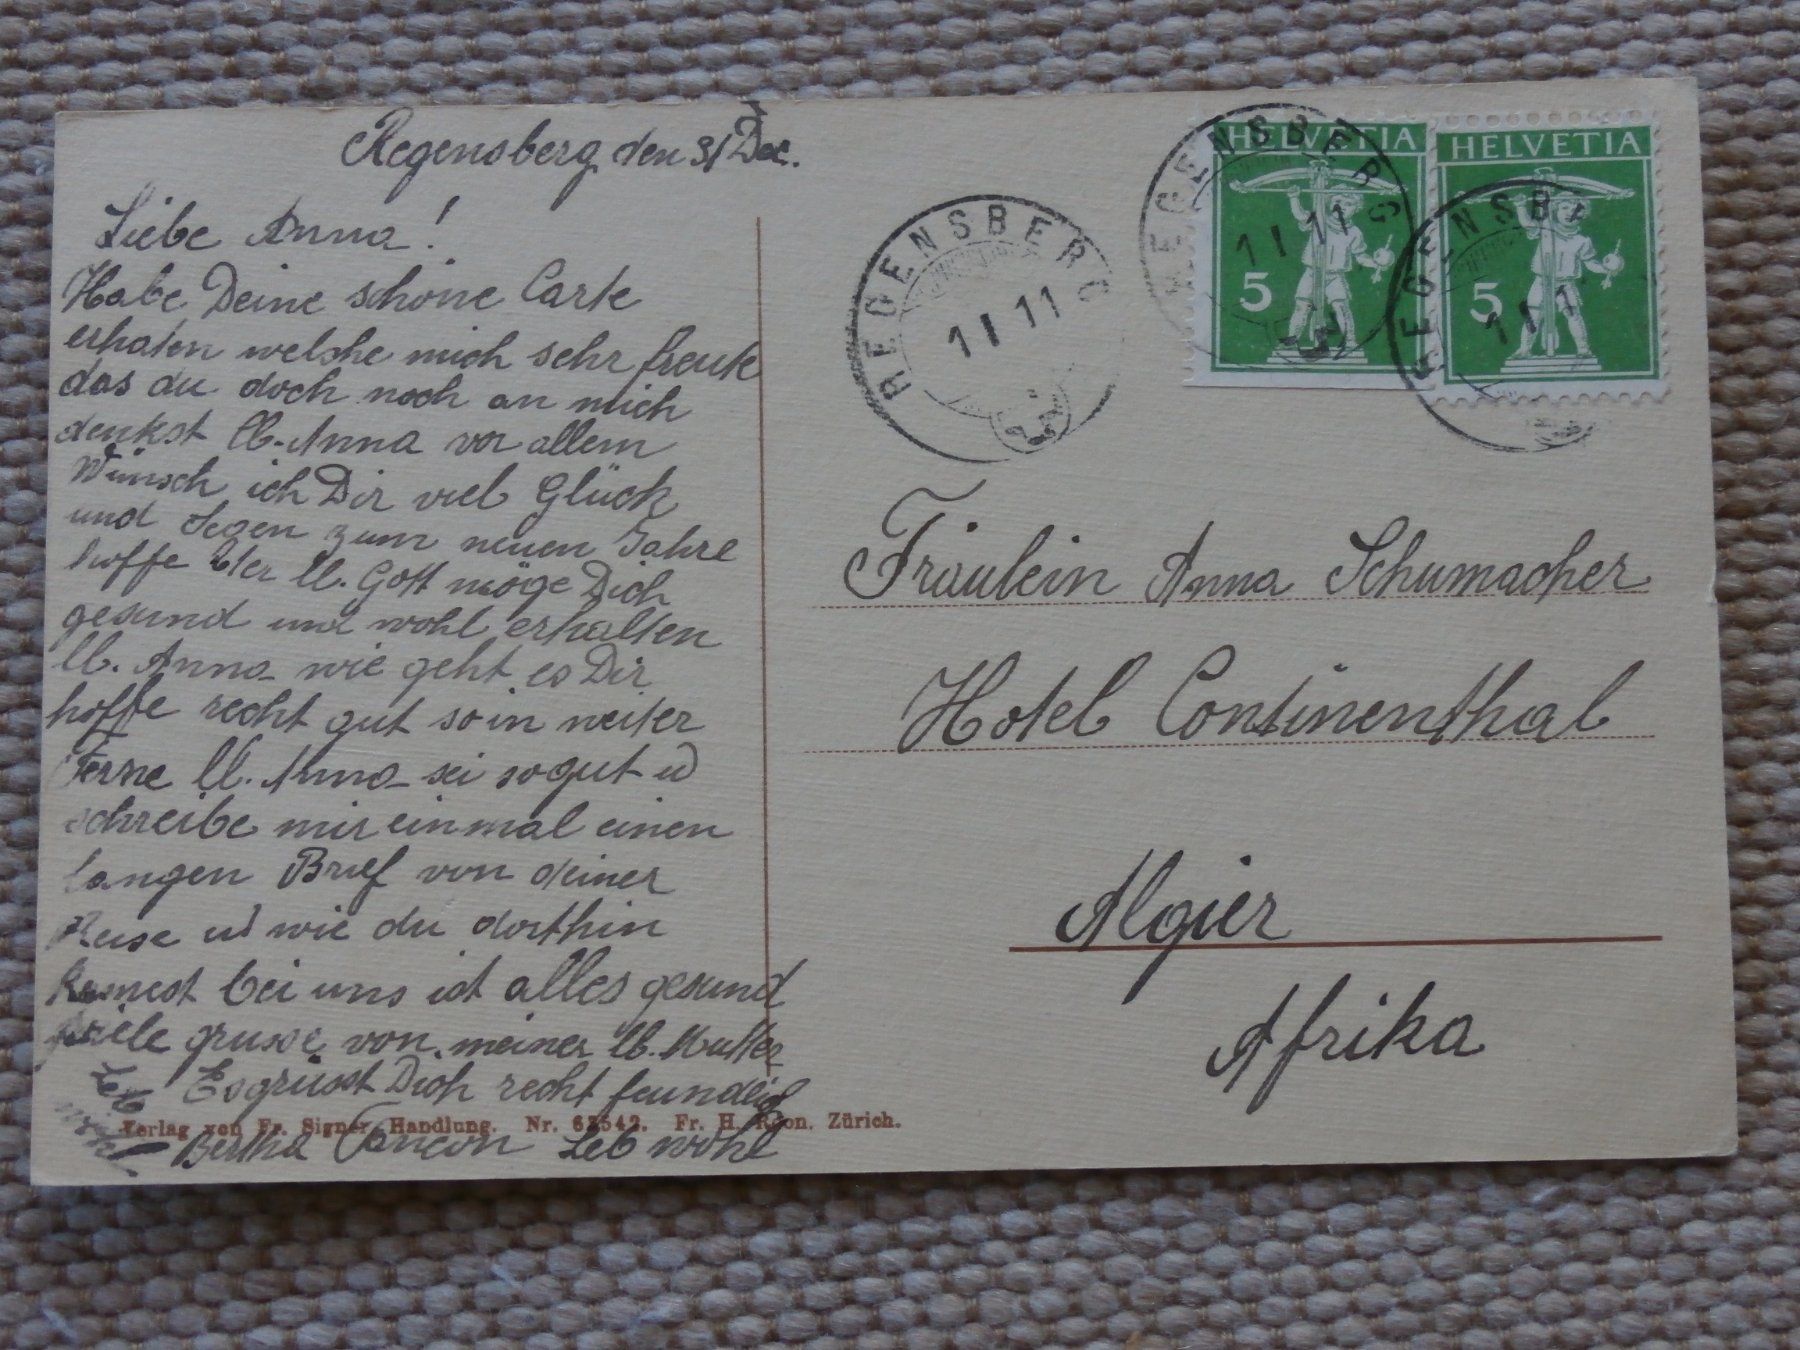 Regensberg, den 31 Dec.
Liebe Anna!
Habe Deine schöne Carte
erhalten welche mich sehr freute
das du doch noch an mich
denkst lb. Anna vor allem
Wünsch ich Dir viel Glück
und Segen zum neuen Jahre
hoffe der lb. Gott möge Dich
gesund und wohl erhalten
lb. Anna wie geht es Dir
hoffe recht gut so in weiter
Ferne lb. Anna sei so gut u
schreibe mir einmal einen
langen Brief von deiner
Reise u wie du dorthin
kamest bei uns ist alles gesund
viele grusse von meiner lb. Mutter
Es grüsst Dich recht feundlich
Bertha Leb wohl
Verlag von Fr. Signer, Handlung. Nr. Fr. H. Zürich.
REGENSBERG
1 I 11
REGENSBERG
1 I 11
REGENSBERG
HELVETIA
5
HELVETIA
5
Fräulein Anna Schumacher
Hotel Continenthal
Algier
Afrika